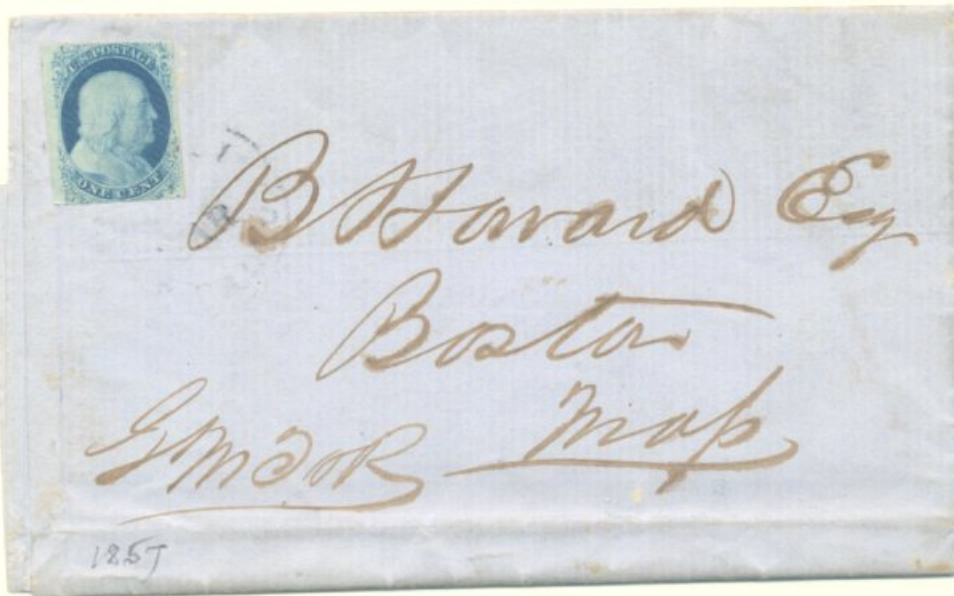 U.S. POSTAGE
ONE CENT
B Howard Esq
Boston
Mass
1857